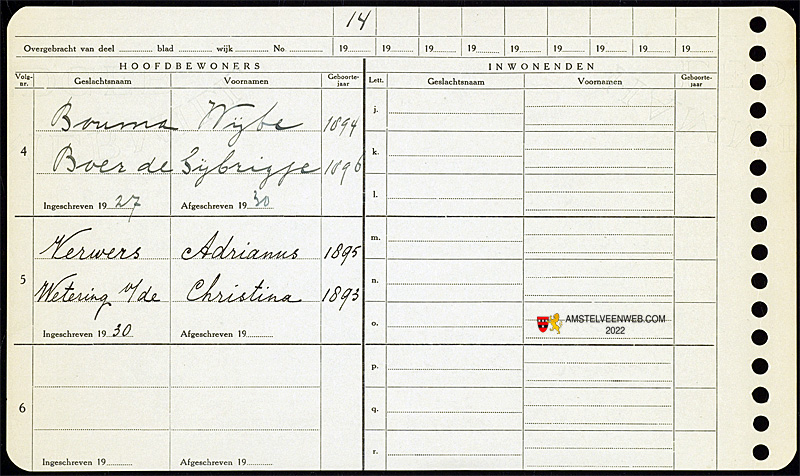 14
Overgebracht van deel blad wijk No 19 19 19 19 19 19 19 19 19
HOOFDBEWONERS INWONENDEN
Volg-nr. Geslachtsnaam Voornamen Geboorte-jaar Lett. Geslachtsnaam Voornamen Geboorte-jaar
4
Bouma Wijbe 1894
Boer de Sijbrigje 1896
Ingeschreven 19 27 Afgeschreven 19 30
5
Verwers Adrianus 1895
Wetering v/de Christina 1893
Ingeschreven 19 30 Afgeschreven 19
6
Ingeschreven 19 Afgeschreven 19
j.
k.
l.
m.
n.
o.
p.
q.
r.
AMSTELVEENWEB.COM
2022